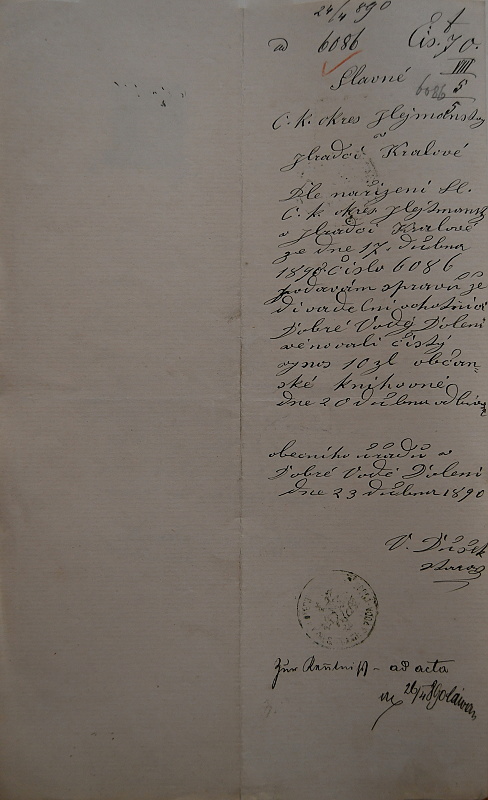 24/4 890
ad 6086 Čís. 70.
Slavné
6086
C. k. okres Hejtmanství
v
Hradci Králové
Dle nařízení Sl.
C. k. okres Hejtmanst
v Hradci Králové
ze dne 17. dubna
1890 číslo 6086
podávám spravu že
divadelní ochotníci
Dobré Vody Dolení
věnovali čistý
výnos 10 zl občan-
ské knihovně
dne 20 dubna
obecního úřadu v
Dobré Vodě Dolení
dne 23 dubna 1890
V. Dušek
staros
Zur Kenntniß - ad acta
26/4